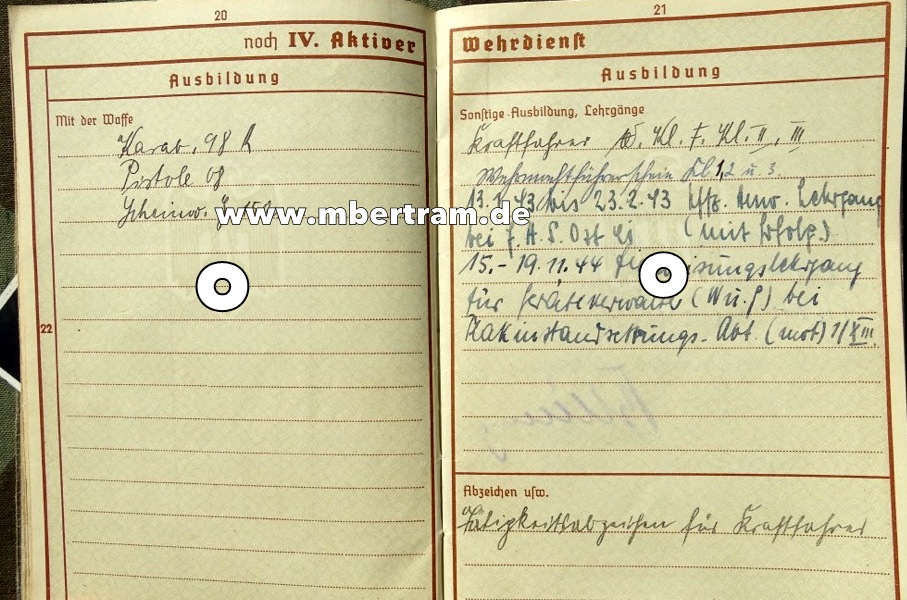 20
noch IV. Aktiver
Ausbildung
Mit der Waffe
Karab. 98 k
Pistole 08
Scheinw. 150
22
www.mbertram.de
21
Wehrdienst
Ausbildung
Sonstige Ausbildung, Lehrgänge
Kraftfahrer Kl. II, III
Wehrmachtführerschein Kl 1, 2 u. 3.
43 bis 23.2.43 Uffz. Anw. Lehrgang
bei Ost (mit Erfolg)
15. - 19.11.44
für Geräteverwalter (W u. G) bei
Flakinstandsetzungs-Abt. (mot) 1/XIII.
Abzeichen usw.
Tätigkeitsabzeichen für Kraftfahrer